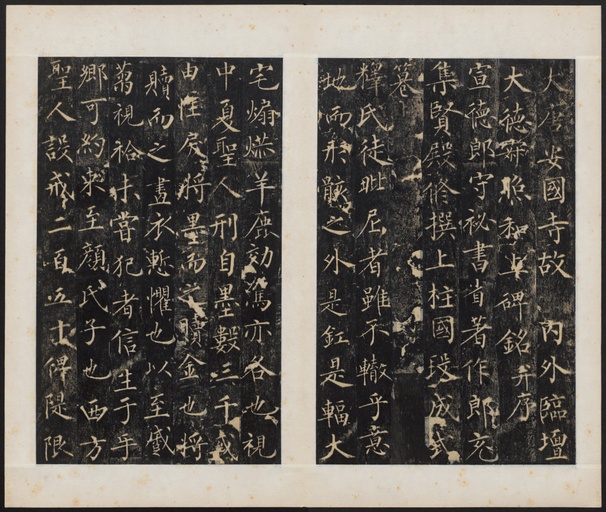 大唐安國寺故內外臨壇
大德寂照和上碑銘并序
宣德郎守祕書省著作郎充
集賢殿修撰上柱國段成式
篹
釋氏徒毗尼者雖不轍乎意
地而形骸之外是釭是輻大
宅煽烘羊鹿効駕亦各也視
中夏聖人刑自墨數三千或
由性戾將墨而之贖金也將
贖而之畫衣慚懼也以至
蒭視袷未當犯者信生于手
鄉可約束至顏氏子也西方
聖人設戒二百五十俾隄限